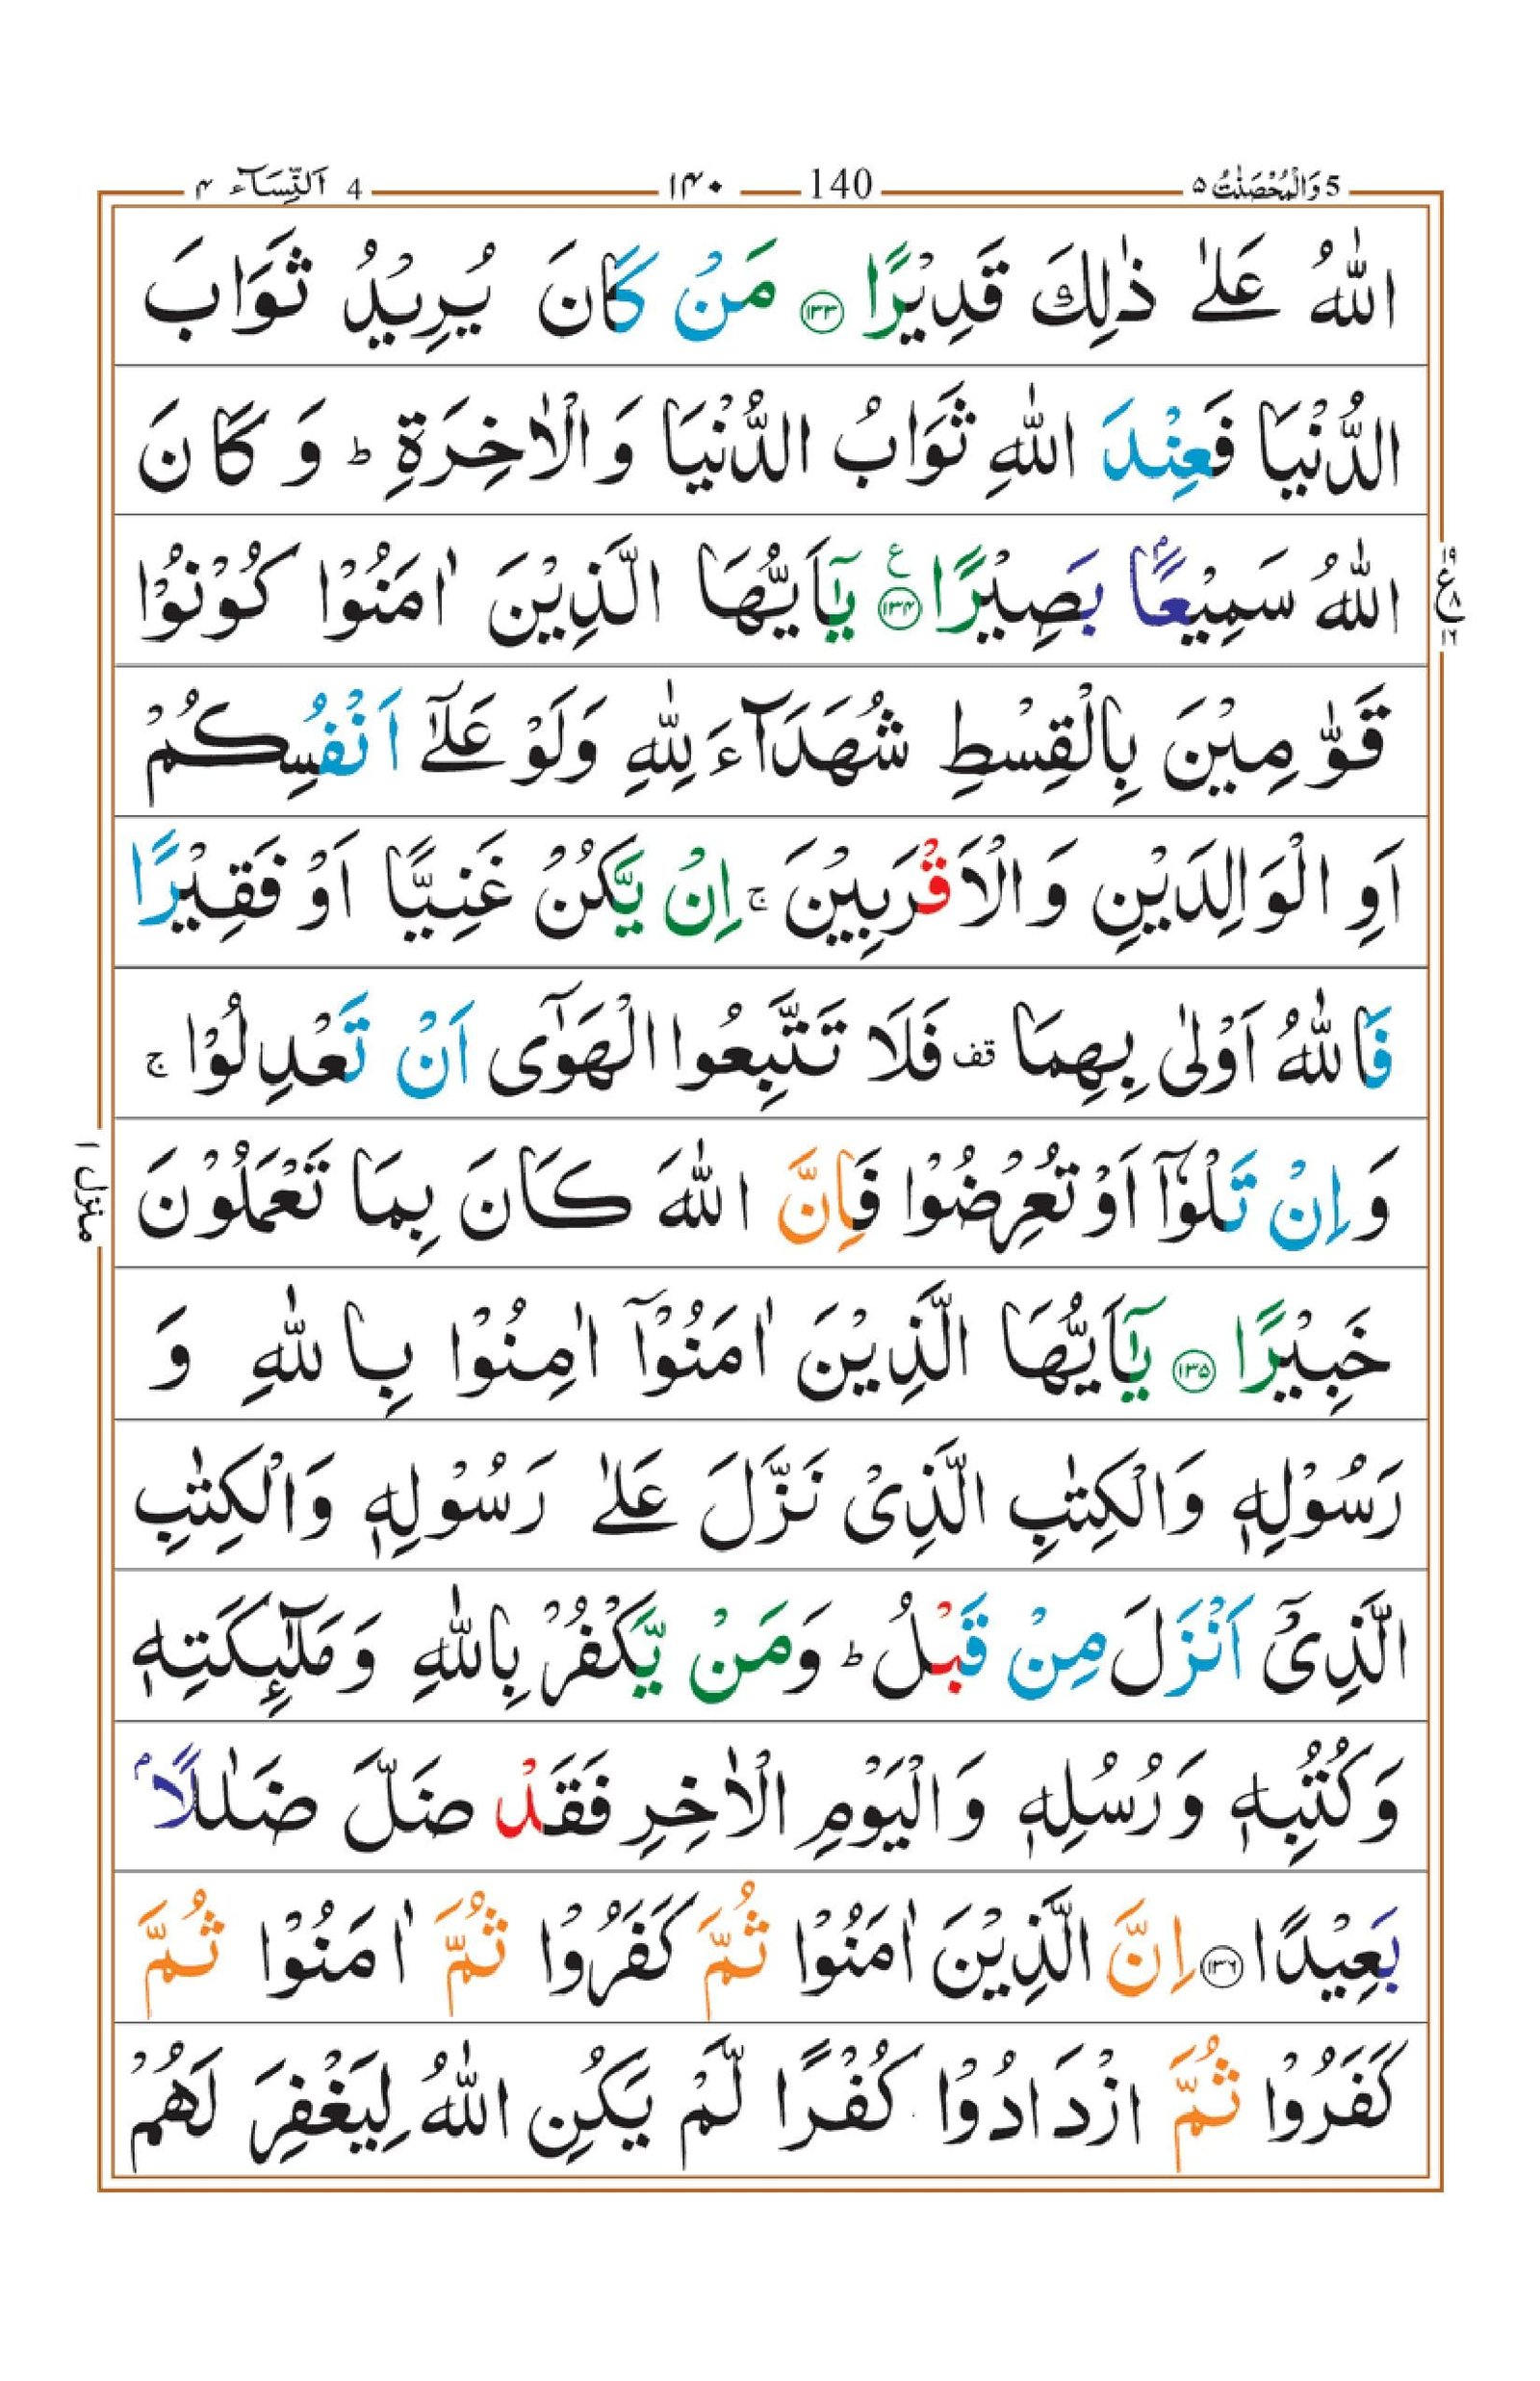 5 وَالْمُحْصَنٰتُ ۵
140 ۱۴۰
4 اَلنِّسَآء ۴
اللّٰهُ عَلٰى ذٰلِكَ قَدِيْرًا ﴿۱۳۳﴾ مَنْ كَانَ يُرِيْدُ ثَوَابَ
الدُّنْيَا فَعِنْدَ اللّٰهِ ثَوَابُ الدُّنْيَا وَالْاٰخِرَةِ ؕ وَ كَانَ
اللّٰهُ سَمِيْعًۢا بَصِيْرًا ﴿۱۳۴﴾ ع يٰۤاَيُّهَا الَّذِيْنَ اٰمَنُوْا كُوْنُوْا
۱۹ ع ۸ ۱۶
قَوّٰمِيْنَ بِالْقِسْطِ شُهَدَآءَ لِلّٰهِ وَلَوْ عَلٰۤى اَنْفُسِكُمْ
اَوِ الْوَالِدَيْنِ وَ الْاَقْرَبِيْنَ ۚ اِنْ يَّكُنْ غَنِيًّا اَوْ فَقِيْرًا
فَاللّٰهُ اَوْلٰى بِهِمَا قف فَلَا تَتَّبِعُوا الْهَوٰۤى اَنْ تَعْدِلُوْا ۚ
وَ اِنْ تَلْوٗۤا اَوْ تُعْرِضُوْا فَاِنَّ اللّٰهَ كَانَ بِمَا تَعْمَلُوْنَ
منزل ۱
خَبِيْرًا ﴿۱۳۵﴾ يٰۤاَيُّهَا الَّذِيْنَ اٰمَنُوْۤا اٰمِنُوْا بِاللّٰهِ وَ
رَسُوْلِهٖ وَالْكِتٰبِ الَّذِىْ نَزَّلَ عَلٰى رَسُوْلِهٖ وَالْكِتٰبِ
الَّذِىْۤ اَنْزَلَ مِنْ قَبْلُ ؕ وَمَنْ يَّكْفُرْ بِاللّٰهِ وَمَلٰٓئِكَتِهٖ
وَكُتُبِهٖ وَرُسُلِهٖ وَالْيَوْمِ الْاٰخِرِ فَقَدْ ضَلَّ ضَلٰلًاۢ
بَعِيْدًا ﴿۱۳۶﴾ اِنَّ الَّذِيْنَ اٰمَنُوْا ثُمَّ كَفَرُوْا ثُمَّ اٰمَنُوْا ثُمَّ
كَفَرُوْا ثُمَّ ازْدَادُوْا كُفْرًا لَّمْ يَكُنِ اللّٰهُ لِيَغْفِرَ لَهُمْ